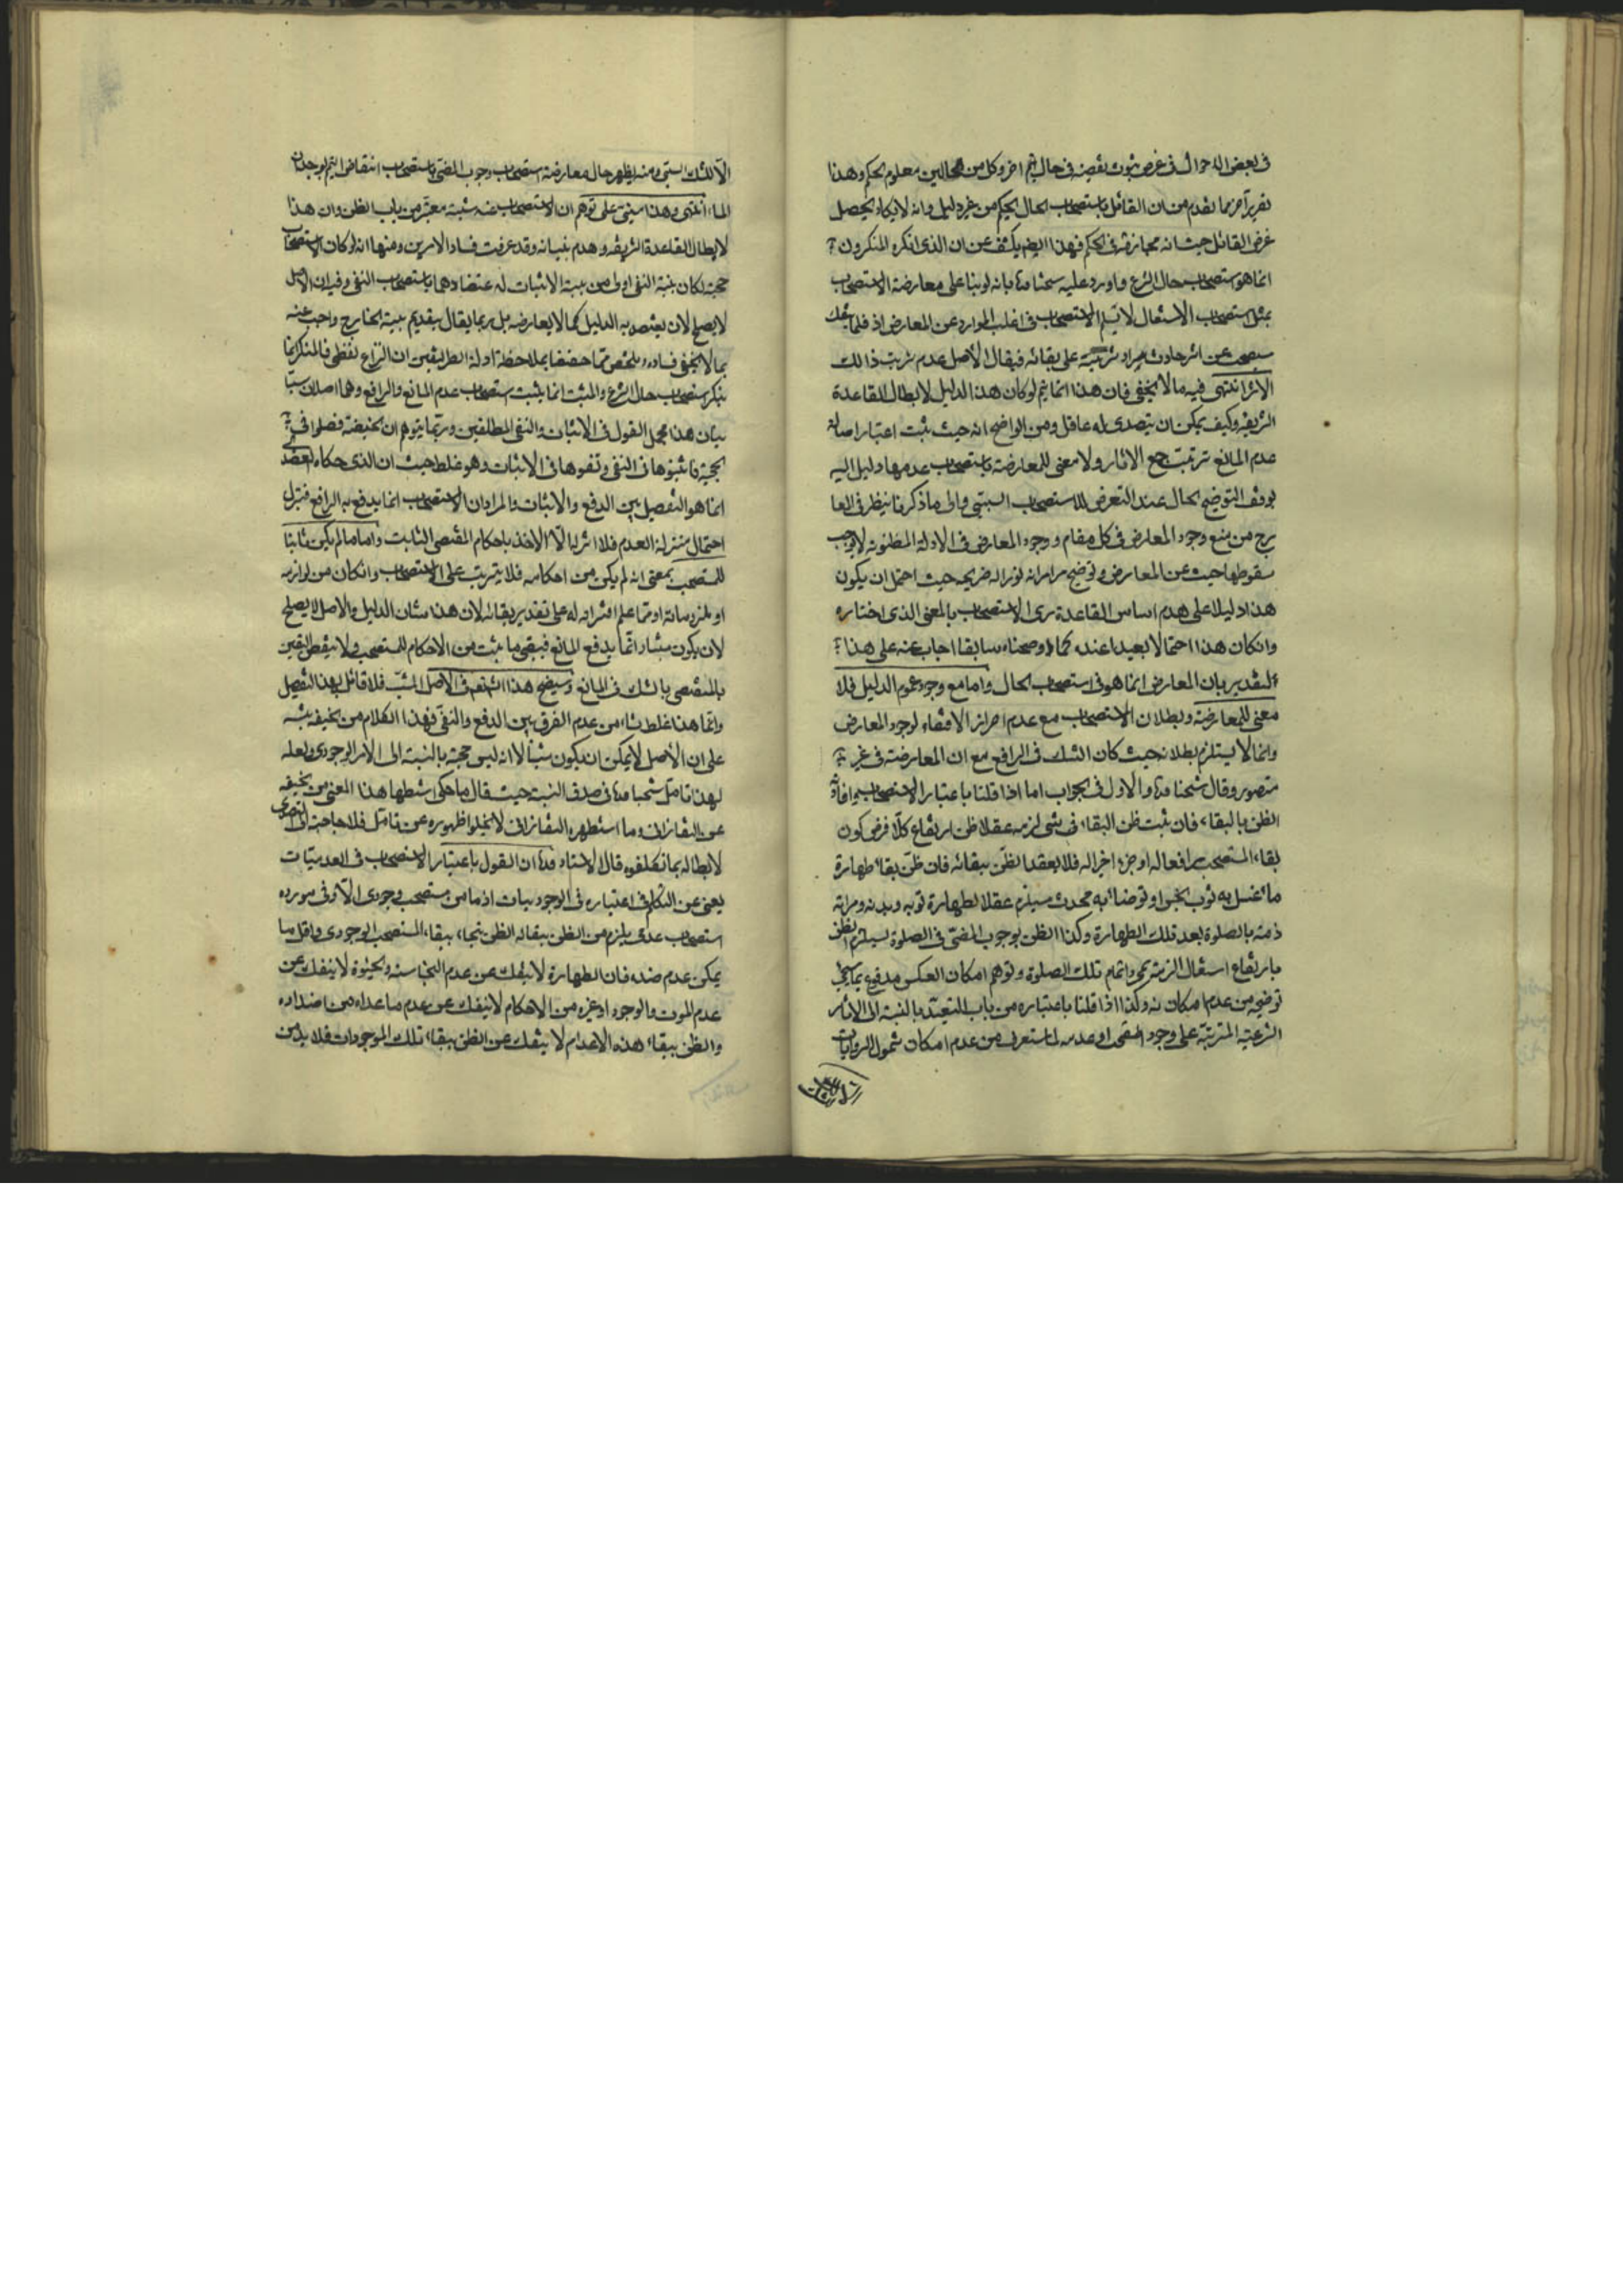 فى بعض الاحوال فى غرض ثبوت نقيضه فى حال اخر وكل من الحالين معلوم الحكم وهذا
تقرير آخر بما تقدم من ان القائل باستصحاب الحال يحكم من غير دليل وانه لا يكاد يحصل
غرض القائل حيث انه مجازفة فى الحكم فهذا ايضا يكشف عن ان الذى انكره المنكرون
انما هو استصحاب حال الشرع واورد عليه شيخنا بانه لو بنا على معارضة الاستصحاب
بمثل استصحاب الاشتغال لا يسلم الاستصحاب فى اغلب الموارد عن المعارض اذ قلما ينفك
مستصحب عن اثر حادث يراد ترتبه على بقائه فيقال الأصل عدم ترتب ذالك
الاثر انتهى فيه ما لا يخفى فان هذا انما يتم لو كان هذا الدليل لابطال القاعدة
الشريفة وكيف يمكن ان يتصدى له عاقل ومن الواضح انه حيث ثبت اعتبار اصالة
عدم المانع ترتبت جميع الاثار ولا معنى للمعارضة باستصحاب عدمها دليل اليه
توقف التوضيح الحال عند التعرض للاستصحاب السببى والى ما ذكرنا ينظر فى المعا
رج من منع وجود المعارض فى كل مقام ووجود المعارض فى الادلة المظنونة لا يوجب
سقوطها حيث عن المعارض وتوضيح مرامه انه نور الله ضريحه حيث احتمل ان يكون
هذا دليلا على هدم اساس القاعدة رى الاستصحاب بالمعنى الذى اختاره
وان كان هذا احتمالا بعيدا عنده كما اوضحناه سابقا اجاب عنه على هذا
التقدير بان المعارض انما هو فى استصحاب الحال واما مع وجود عموم الدليل فلا
معنى للمعارضة وبطلان الاستصحاب مع عدم احراز الاقتضاء لوجود المعارض
وانما لا يستلزم بطلانه حيث كان الشك فى الرافع مع ان المعارضة فى غير
متصور وقال شيخنا والاولى فى الجواب اما اذا قلنا باعتبار الاستصحاب لافادة
الظن بالبقاء فان ثبت ظن البقاء فى شى لزمه عقلا ظن ارتفاع كلما فرض كون
بقاء المستصحب رافعا له او جزء اخر له فلا يعقد الظن ببقائه فان ظن بقاء طهارة
ما غسل به ثوب نجس او توضأ به محدث يستلزم عقلا لطهارة ثوبه وبدنه وبرائة
ذمته بالصلوة بعد تلك الطهارة وكذا الظن بوجوب المضى فى الصلوة يستلزم الظن
بارتفاع اشتغال الذمة بمجرد اتمام تلك الصلوة وتوهم امكان العكس مدفوع بما يجئ
توضيحه من عدم امكانه وكذا اذا قلنا باعتباره من باب التعبد بالنسبة الى الاثار
الشرعية المترتبة على وجود المستصحب او عدمه لما ستعرف من عدم امكان شمول الروايات
الا للشك السببى ومنه يظهر حال معارضة استصحاب وجوب المضى باستصحاب انتقاض التيمم بوجدان
الماء انتهى وهذا مبنى على توهم ان الاستصحاب عنده معتبر من باب الظن وان هذا
لابطال القاعدة الشريفة وهدم بنيانه وقد عرفت فساد الامرين ومنها انه لو كان الاستصحاب
حجة لكان بينة النفى اولى من بينة الاثبات لاعتضادها باستصحاب النفى وفيه ان الاصل
لا يصلح لان يعتضد به الدليل كما لا يعارضه بل ربما يقال بتقديم بينة الخارج واجيب عنه
بما لا يخفى فساده تلخص مما حققنا بملاحظة ادلة الطرفين ان النزاع لفظى فالمنكر انما
ينكر استصحاب حال الشرع والمثبت انما يثبت استصحاب عدم المانع والرافع وهما اصلان متبا
ينان هذا مجمل القول فى الاثبات والنفى المطلقين وربما يتوهم ان الحنفية فصلوا فى
الحجية فاثبتوها فى النفى ونفوها فى الاثبات وهو غلط حيث ان الذى حكاه العضد
انما هو التفصيل بين الدفع والاثبات والمراد ان الاستصحاب انما يدفع به الرافع فينزل
احتماله منزلة العدم فلا اثر له الا الاخذ باحكام المقتضى الثابت واما ما لم يكن ثابتا
للمستصحب بمعنى انه لم يكن من احكامه فلا يترتب على الاستصحاب وان كان من لوازمه
او ملزوماته او مما علم اقترانه له على تقدير بقائه لان هذا شان الدليل والاصل لا يصلح
لان يكون مثبتا وانما يدفع المانع فيبقى ما يثبت من الاحكام للمستصحب ولا ينقض اليقين
بالمقتضى بالشك فى المانع وسيتضح هذا انشاء الله تعالى فى الأصل المثبت فلا قائل بهذا التفصيل
وانما هذا غلط نشاء من عدم الفرق بين الدفع والنفى فهذا الكلام من الحنفية
على ان الأصل لا يمكن ان يكون مثبتا لا انه ليس حجة بالنسبة الى الامر الوجودى ولعله
لهذا تأمل شيخنا فى صدق النسبة حيث قال ما حكى استظهار هذا المعنى من الحنفية
عن التفتازانى وما استظهره التفتازانى لا يخلو ظهوره عن تأمل فلا حاجة الى التصدى
لابطاله بما تكلفوه قال الاستاد ان القول باعتبار الاستصحاب فى العدميات
يغنى عن التكلم فى اعتباره فى الوجوديات اذ ما من مستصحب وجودى الا وفى مورده
استصحاب عدمى يلزم من الظن ببقائه الظن ببقاء المستصحب الوجودى واقل ما
يمكن عدم ضده فان الطهارة لا ينفك عن عدم النجاسة والحيوة لا ينفك عن
عدم الموت والوجوب او غيره من الاحكام لا ينفك عن عدم ما عداه من اضداده
والظن ببقاء هذه الاعدام لا ينفك عن الظن ببقاء تلك الموجودات فلا بد من